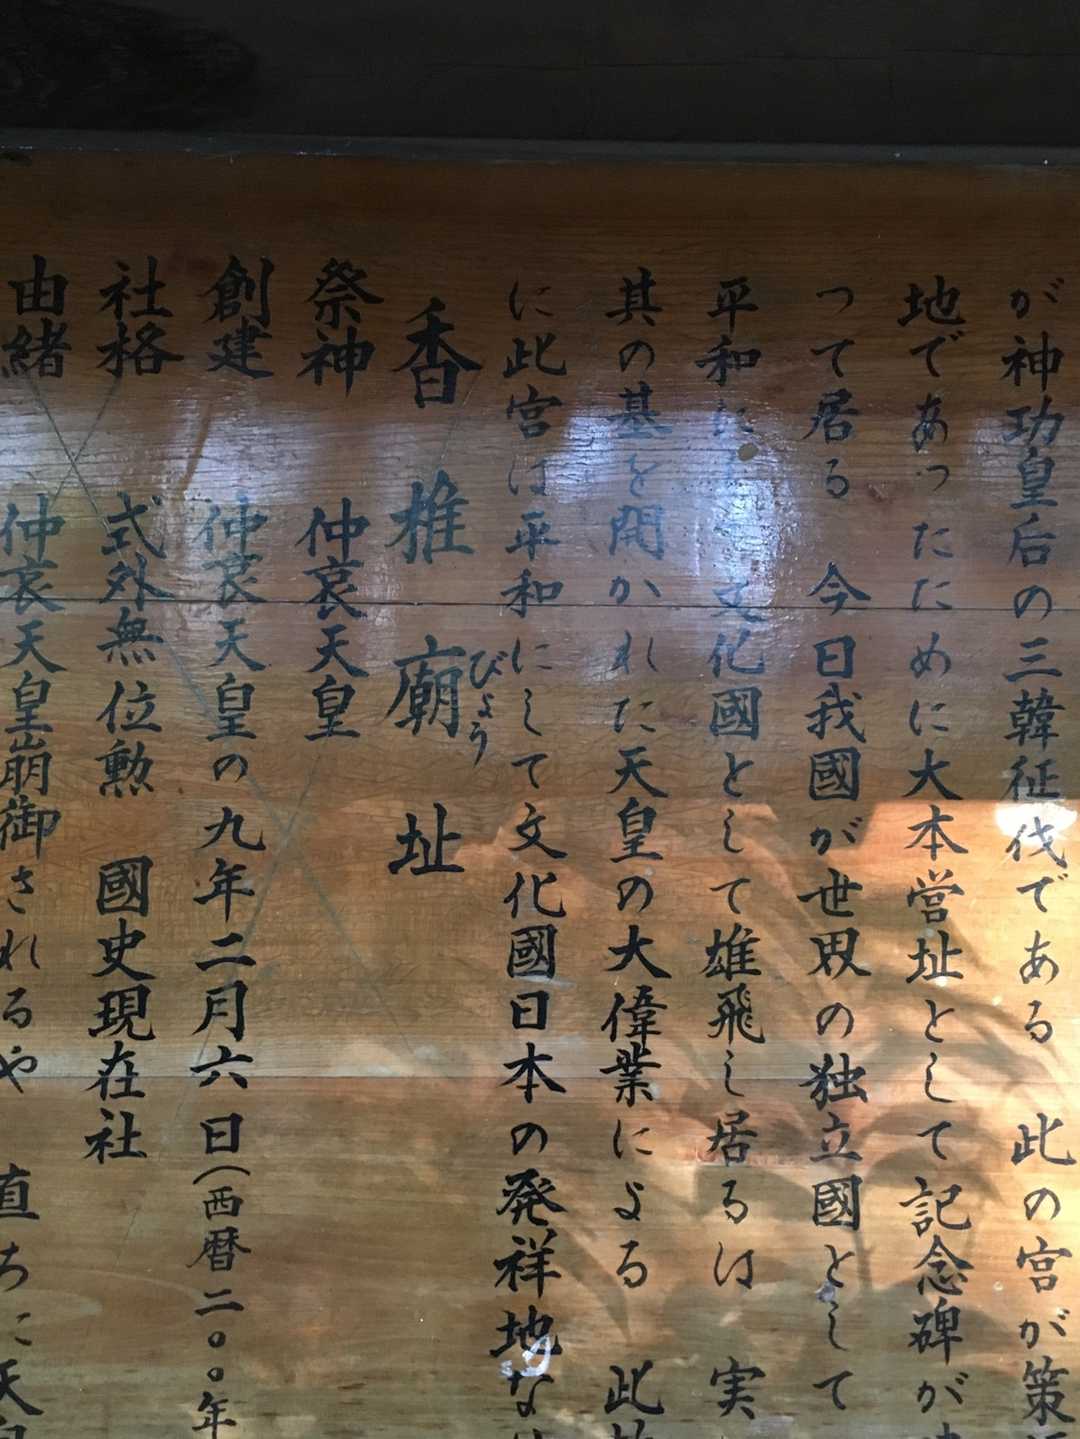 が神功皇后の三韓征伐である　此の宮が策
地であったために大本営址として記念碑が
って居る　今日我國が世界の独立國として
平和にして文化國として雄飛し居るは　実
其の基を開かれた天皇の大偉業による　此
に此宮は平和にして文化國日本の発祥地な
香椎廟址
びょう
祭神　仲哀天皇
創建　仲哀天皇の九年二月六日（西暦二〇〇年
社格　式外無位勲　國史現在社
由緒　仲哀天皇崩御されるや　直ちに天皇